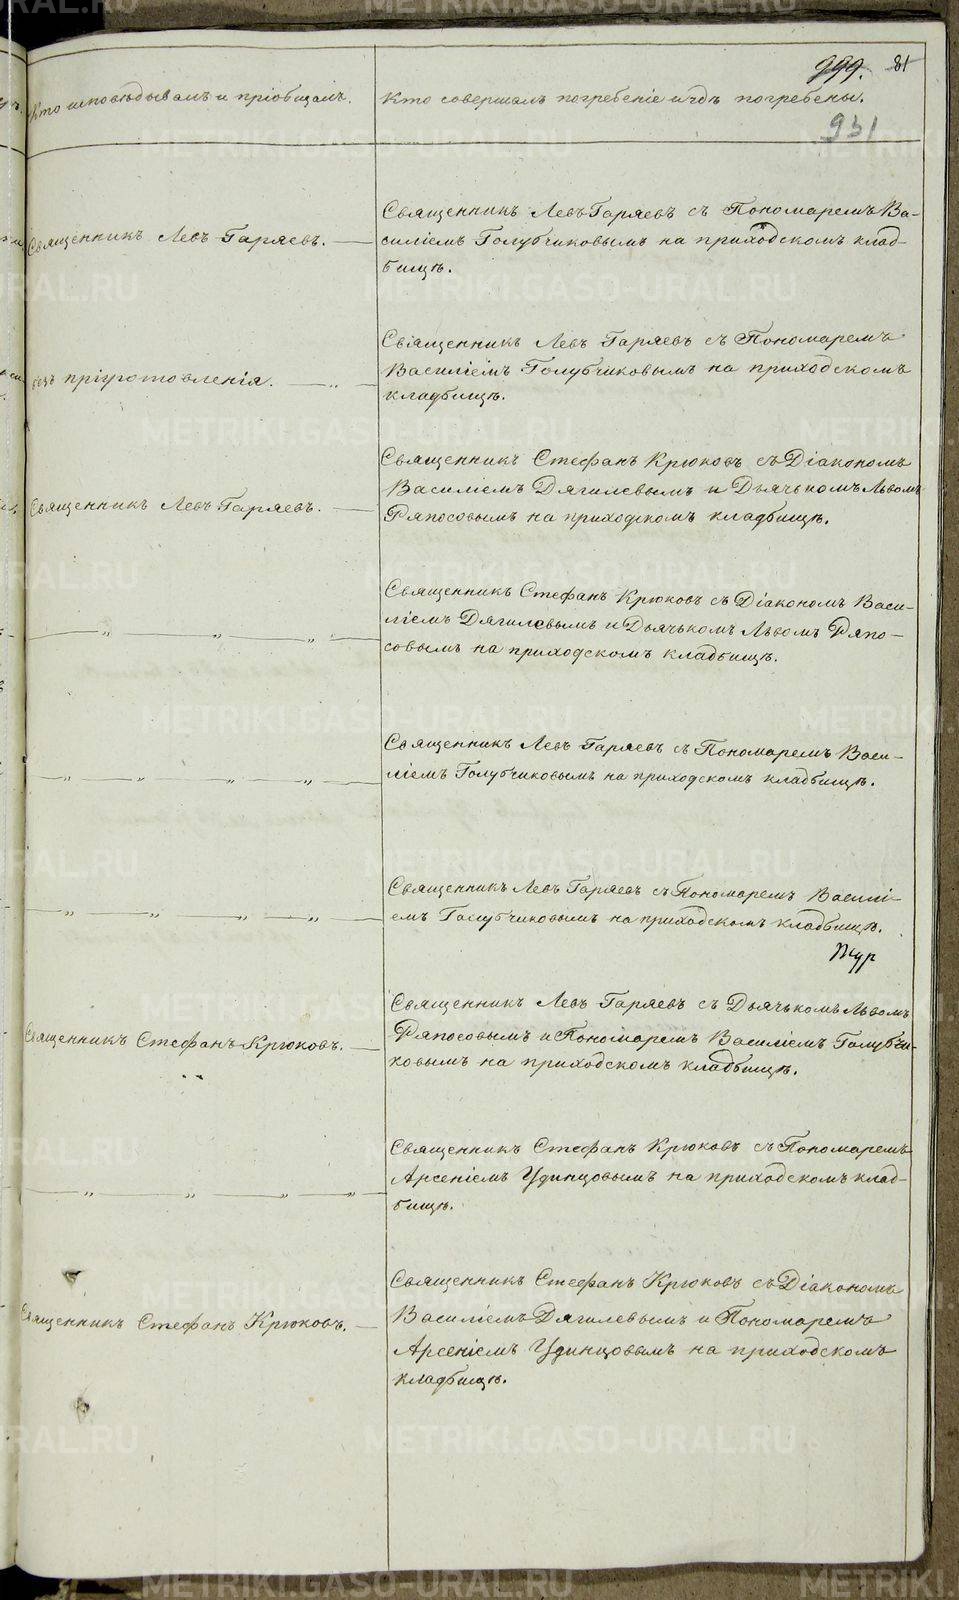 999. 81
Кто исповѣдывалъ и пріобщалъ.
Кто совершалъ погребеніе и гдѣ погребены.
931
Священникъ Левъ Гаряевъ.
Священникъ Левъ Гаряевъ съ Пономаремъ Ва-
силіемъ Голубчиковымъ на приходскомъ клад-
бищѣ.
безъ пріуготовленія.
Священникъ Левъ Гаряевъ съ Пономаремъ
Василіемъ Голубчиковымъ на приходскомъ
кладбищѣ.
Священникъ Левъ Гаряевъ.
Священникъ Стефанъ Крюковъ съ Діакономъ
Василіемъ Дягилевымъ и Дьячькомъ Львомъ
Ряпосовымъ на приходскомъ кладбищѣ.
— „ — „ — „ —
Священникъ Стефанъ Крюковъ съ Діакономъ Васи-
ліемъ Дягилевымъ и Дьячькомъ Львомъ Ряпо-
совымъ на приходскомъ кладбищѣ.
— „ — „ — „ — „ —
Священникъ Левъ Гаряевъ съ Пономаремъ Васи-
ліемъ Голубчиковымъ на приходскомъ кладбищѣ.
— „ — „ — „ — „ —
Священникъ Левъ Гаряевъ съ Пономаремъ Васили-
емъ Голубчиковымъ на приходскомъ кладбищѣ.
Священникъ Стефанъ Крюковъ.
Священникъ Левъ Гаряевъ съ Дьячькомъ Львомъ
Ряпосовымъ и Пономаремъ Василіемъ Голубчи-
ковымъ на приходскомъ кладбищѣ.
— „ — „ — „ — „ —
Священникъ Стефанъ Крюковъ съ Пономаремъ
Арсеніемъ Удинцовымъ на приходскомъ клад-
бищѣ.
Священникъ Стефанъ Крюковъ.
Священникъ Стефанъ Крюковъ съ Діакономъ
Василіемъ Дягилевымъ и Пономаремъ
Арсеніемъ Удинцовымъ на приходскомъ
кладбищѣ.
METRIKI.GASO-URAL.RU